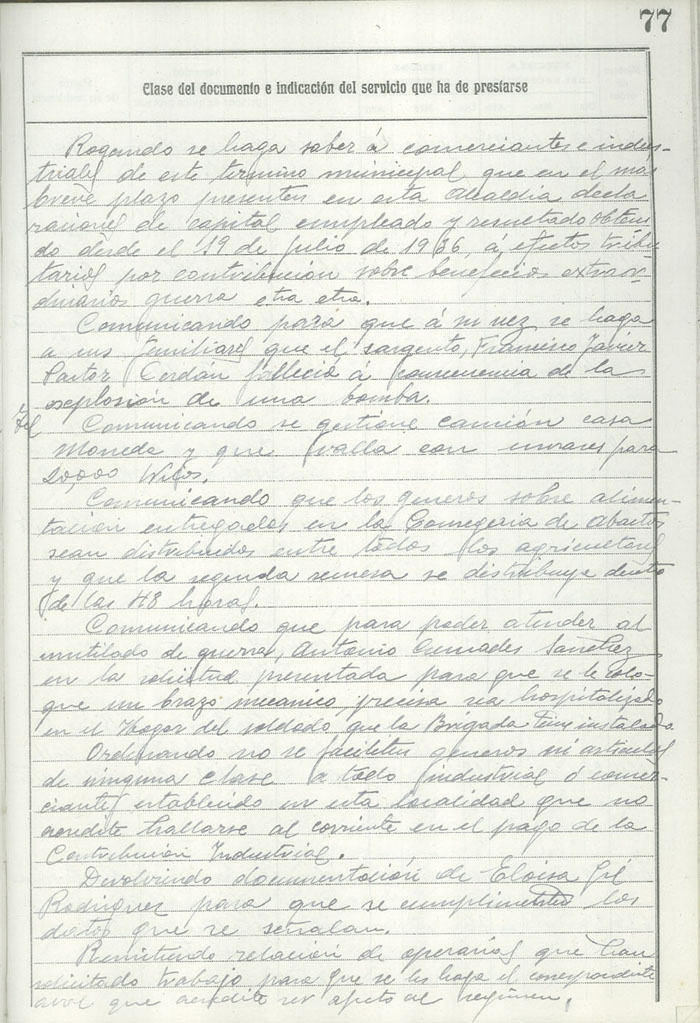 77
Clase del documento e indicación del servicio que ha de prestarse
Rogando se haga saber á comerciantes e indus-
triales de este termino municipal que en el más
breve plazo presenten en esta Alcaldia decla
raciones de capital empleado y resultado obteni
do desde el 19 de Julio de 1936, á efectos tribu
tarios por contribución sobre beneficios extraor
dinarios guerra etra etra.
Comunicando para que á su vez se haga
a sus familiares que el sargento, Francisco Javier
Pastor Cerdan falleció á consecuencia de la
esplosion de una bomba.
Comunicando se gestione camión casa
Moneda y que valla con envases para
20,000 kilos.
Comunicando que los generos sobre alimen-
tación entregados en la Consegeria de Abastos
sean distribuidos entre todos los agricultores
y que la segunda remesa se distribuya dentro
de las 48 horas.
Comunicando que para poder atender al
mutilado de guerra, Antonio Sanchez
en la solicitud presentada para que se le colo-
que un brazo mecanico precisa sea hospitalizado
en el Hogar del soldado, que la Brigada tiene instalado.
Ordenando no se faciliten generos ni articulos
de ninguna clase a todo industrial ó comer-
ciantes establecido en esta localidad que no
acredite hallarse al corriente en el pago de la
Contribución Industrial.
Devolviendo documentación de Eloisa Gil
Rodriguez para que se los
datos que se señalan.
Remitiendo relación de operarios que han
solicitado trabajo para que se les haga el correspondiente
aval que acredite ser afecto al regimen.